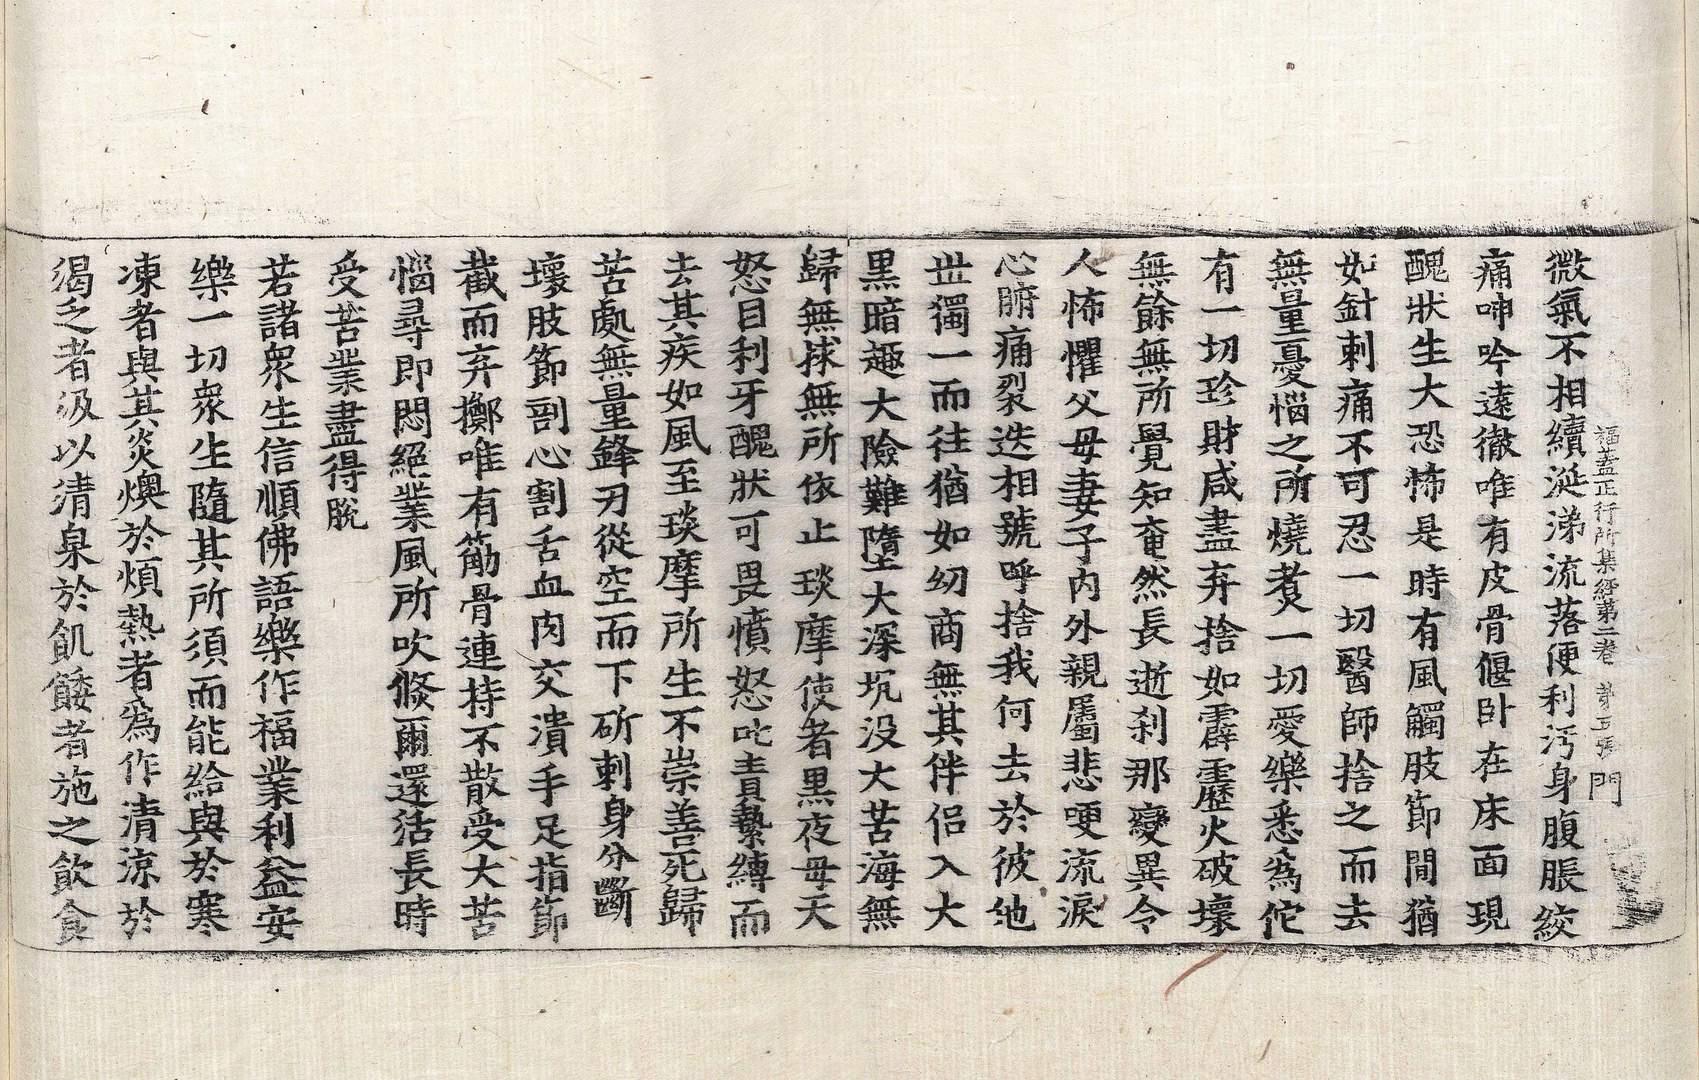 福蓋正行所集經第二卷 第五張 門
微氣不相續涎涕流落便利污身腹脹絞
痛呻吟遠徹唯有皮骨偃卧在床面現
醜狀生大恐怖是時有風觸肢節間猶
如針刺痛不可忍一切醫師捨之而去
無量憂惱之所燒煮一切愛樂悉為佗
有一切珍財咸盡弃捨如霹靂火破壞
無餘無所覺知奄然長逝刹那變異令
人怖懼父母妻子內外親屬悲哽流淚
心腑痛裂迭相號呼捨我何去於彼他
丗獨一而往猶如幼商無其伴侶入大
黑暗趣大險難墮大深坑没大苦海無
歸無捄無所依止琰摩使者黑夜母天
怒目利牙醜狀可畏憤怒叱責縶縛而
去其疾如風至琰摩所生不崇善死歸
苦處無量鋒刃從空而下斫刺身分斷
壞肢節剖心割舌血肉交潰手足指節
截而弃擲唯有筋骨連持不散受大苦
惱尋即悶絕業風所吹倏爾還活長時
受苦業盡得脫
若諸衆生信順佛語樂作福業利益安
樂一切衆生隨其所須而能給與於寒
凍者與其炎燠於煩熱者為作清涼於
渴乏者汲以清泉於飢餧者施之飲食